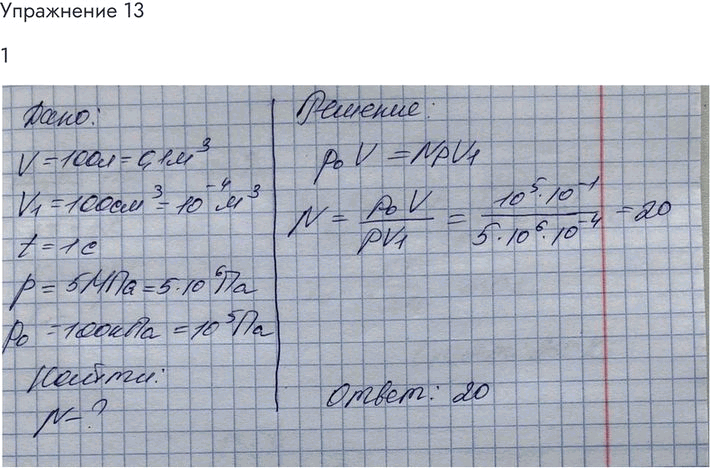 Упражнение 13
1
Дано:
V = 100л = 0,1м³
V₁ = 100см³ = 10⁻⁴ м³
t = 1 с
p = 5МПа = 5·10⁶Па
p₀ = 100кПа = 10⁵Па
Найти:
N = ?
Решение:
p₀ V = NpV₁
N = p₀ V / pV₁ = 10⁵·10⁻¹ / 5·10⁶·10⁻⁴ = 20
Ответ: 20